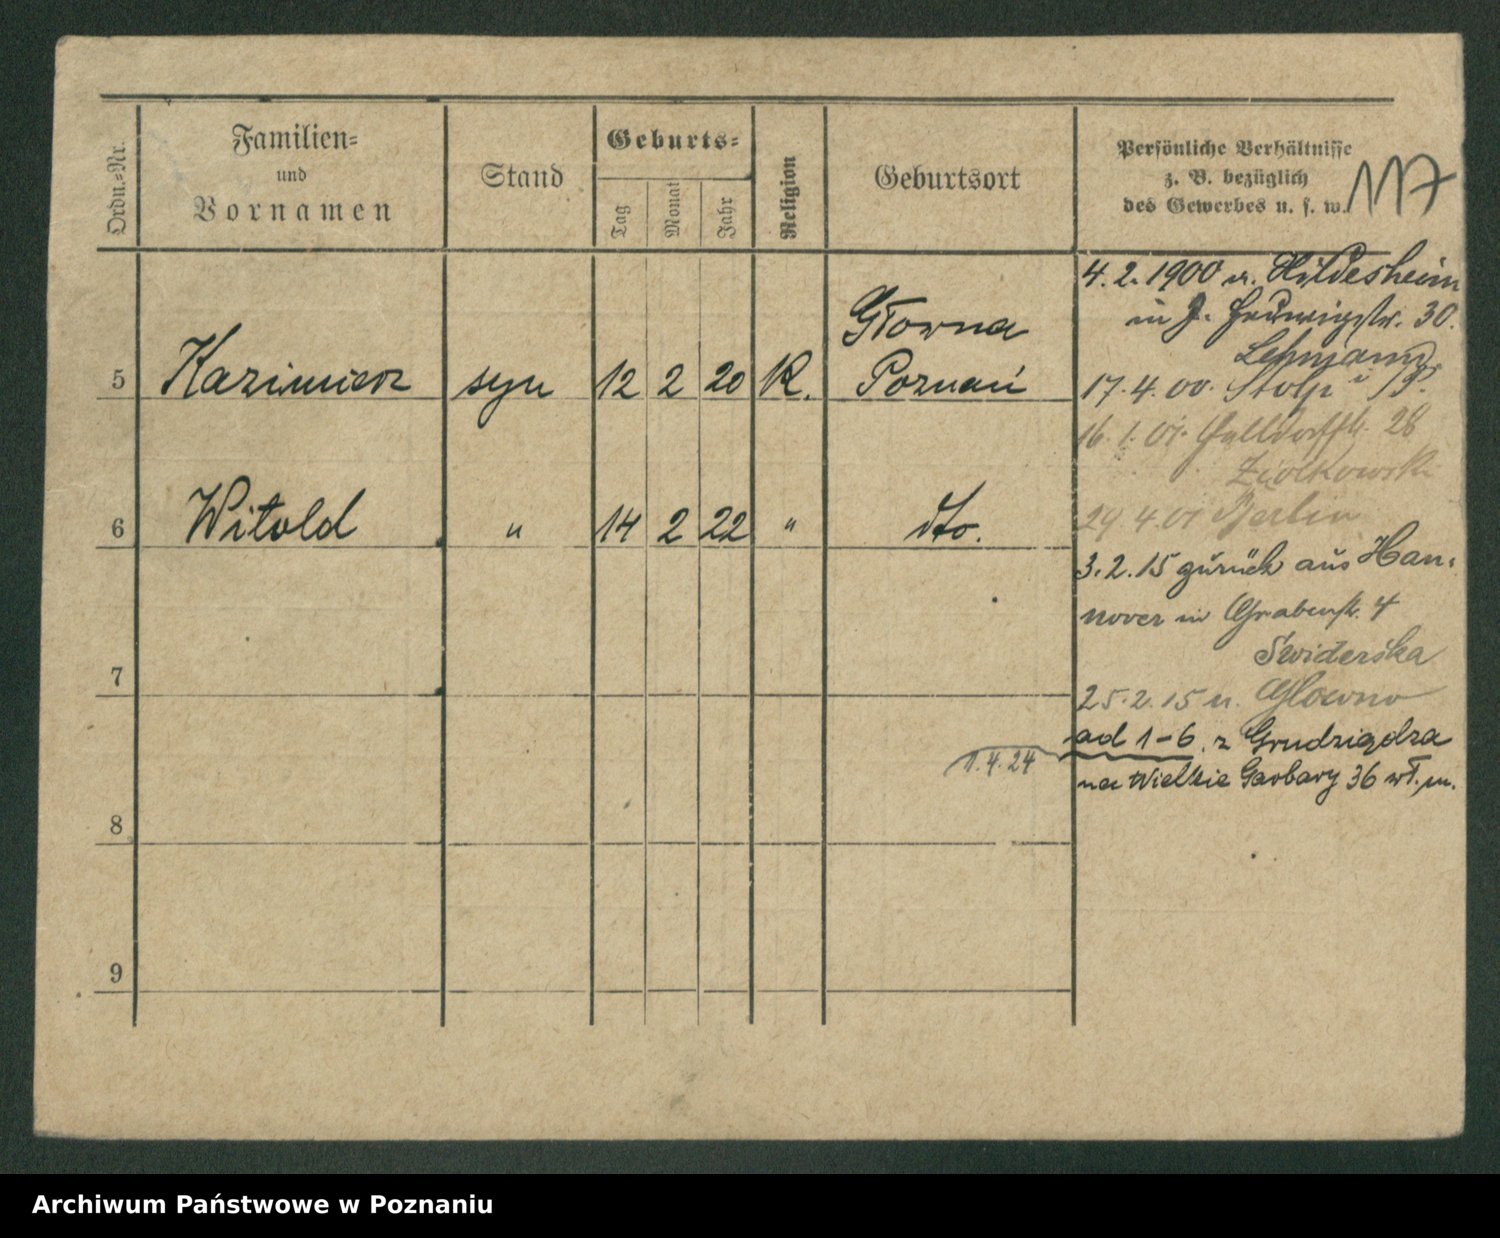 Ordn.=Nr.
Familien=
und
Vornamen
Stand
Geburts=
Tag
Monat
Jahr
Religion
Geburtsort
Persönliche Verhältnisse
z. B. bezüglich
des Gewerbes u. s. w.
117
5 Kazimierz syn 12 2 20 K. Głowna Poznań
6 Witold " 14 2 22 " dto.
7
8
9
4.2.1900 v. Hildesheim
in J. Hedwigstr. 30.
Lehmann
17.4.00. Stolp i/P.
16.1.01. 28
Ziolkowski
29 4 01 Berlin
3.2.15 zurück aus Han-
nover in Grabenstr. 4
Swiderska
25.2.15 n. Glowno
ad 1-6. z Grudziądza
1.4.24
na Wielkie Garbary 36 wł. m.
Archiwum Państwowe w Poznaniu